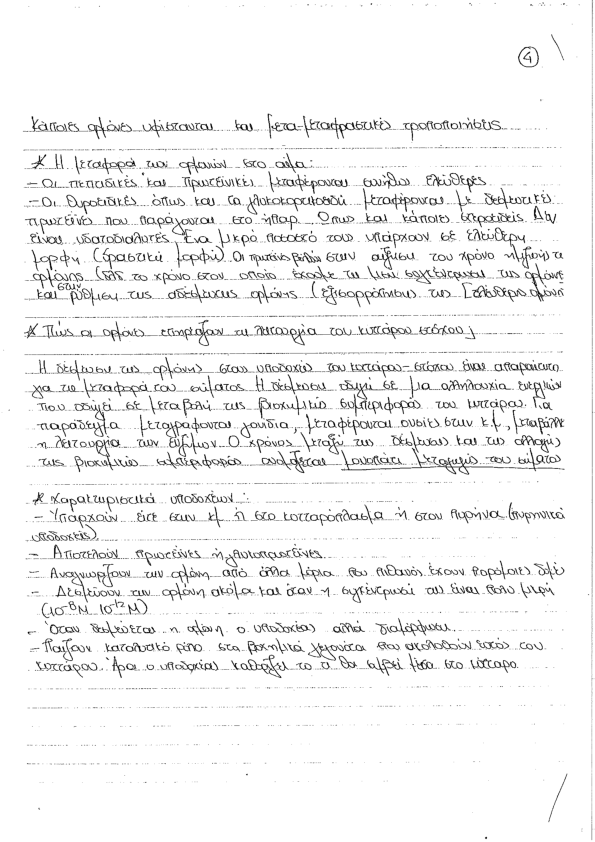 4
Κάποιες ορμόνες υφίστανται και μετα-μεταφραστικές τροποποιήσεις
* Η μεταφορά των ορμονών στο αίμα:
- Οι πεπτιδικές και πρωτεϊνικές μεταφέρονται συνήθως ελεύθερες
- Οι θυροειδικές όπως και τα γλυκοκορτικοειδή μεταφέρονται με δεσμευτικές
πρωτεΐνες που παράγονται στο ήπαρ. Όπως και κάποιες στεροειδείς. Δεν
είναι υδατοδιαλυτές. Ένα μικρό ποσοστό τους υπάρχουν σε ελεύθερη
μορφή (δραστική μορφή). Οι πρωτεΐνες βοηθούν στην αύξηση του χρόνο ημιζωής τη
ορμόνης (δηλ. το χρόνο στον οποίο έχουμε τη συγκέντρωση της ορμόνης
και στην ρύθμιση της αδέσμευτης ορμόνης (εξισορρόπησης της [ελεύθερη ορμόνη
* Πώς οι ορμόνες επηρεάζουν τη λειτουργία του κυττάρου στόχου;
Η δέσμευση της ορμόνης στους υποδοχείς του κυττάρου-στόχου είναι απαραίτητη
για τη μεταφορά του σήματος. Η δέσμευση οδηγεί σε μια αλληλουχία ενεργειών
που οδηγεί σε μεταβολή της βιοχημικής συμπεριφοράς του κυττάρου. Για
παράδειγμα μεταγράφονται γονίδια, μεταφέρονται ουσίες στην κ.μ, μεταβάλλε
η λειτουργία των ενζύμων. Ο χρόνος μεταξύ της δέσμευσης και της αλλαγής
της βιοχημικής συμπεριφοράς ονομάζεται μονοπάτι μεταγωγής του σήματος
* Χαρακτηριστικά υποδοχέων:
- Υπάρχουν είτε στην κμ ή στο κυτταρόπλασμα ή στον πυρήνα (πυρηνικοί
υποδοχείς)
- Αποτελούν πρωτεΐνες ή γλυκοπρωτεΐνες
- Αναγνωρίζουν την ορμόνη από άλλα μόρια που πιθανώς έχουν παρόμοιες δομές
- Δεσμεύουν την ορμόνη ακόμα και όταν η συγκέντρωσή της είναι πολύ μικρή
(10⁻⁸Μ 10⁻¹²Μ)
- Όταν δεσμεύεται η ορμόνη ο υποδοχέας αλλάζει διαμόρφωση.
- Παίζουν καταλυτικό ρόλο στα βιοχημικά γεγονότα που ακολουθούν εντός του
κυττάρου. Άρα ο υποδοχέας καθορίζει το τι θα συμβεί μέσα στο κύτταρο